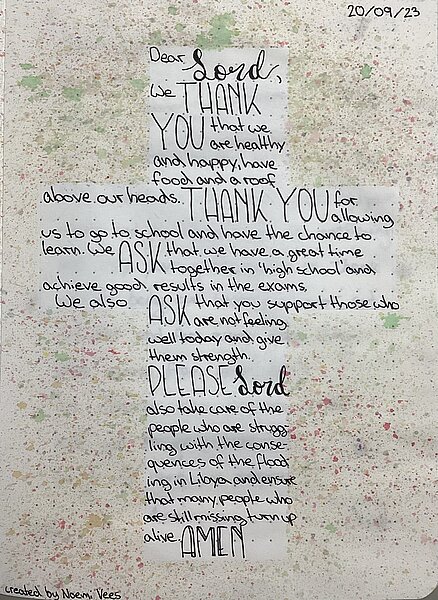 20/09/23
Dear Lord,
We THANK
YOU that we
are healthy
and happy, have
food and a roof
above our heads. THANK YOU for
allowing
us to go to school and have the chance to
learn. We ASK that we have a great time
together in 'high school' and
achieve good results in the exams.
We also
ASK that you support those who
are not feeling
well today and give
them strength.
PLEASE Lord
also take care of the
people who are strugg-
ling with the conse-
quences of the flood
ing in Libya and ensure
that many people who
are still missing turn up
alive. AMEN
created by Noemi Vees